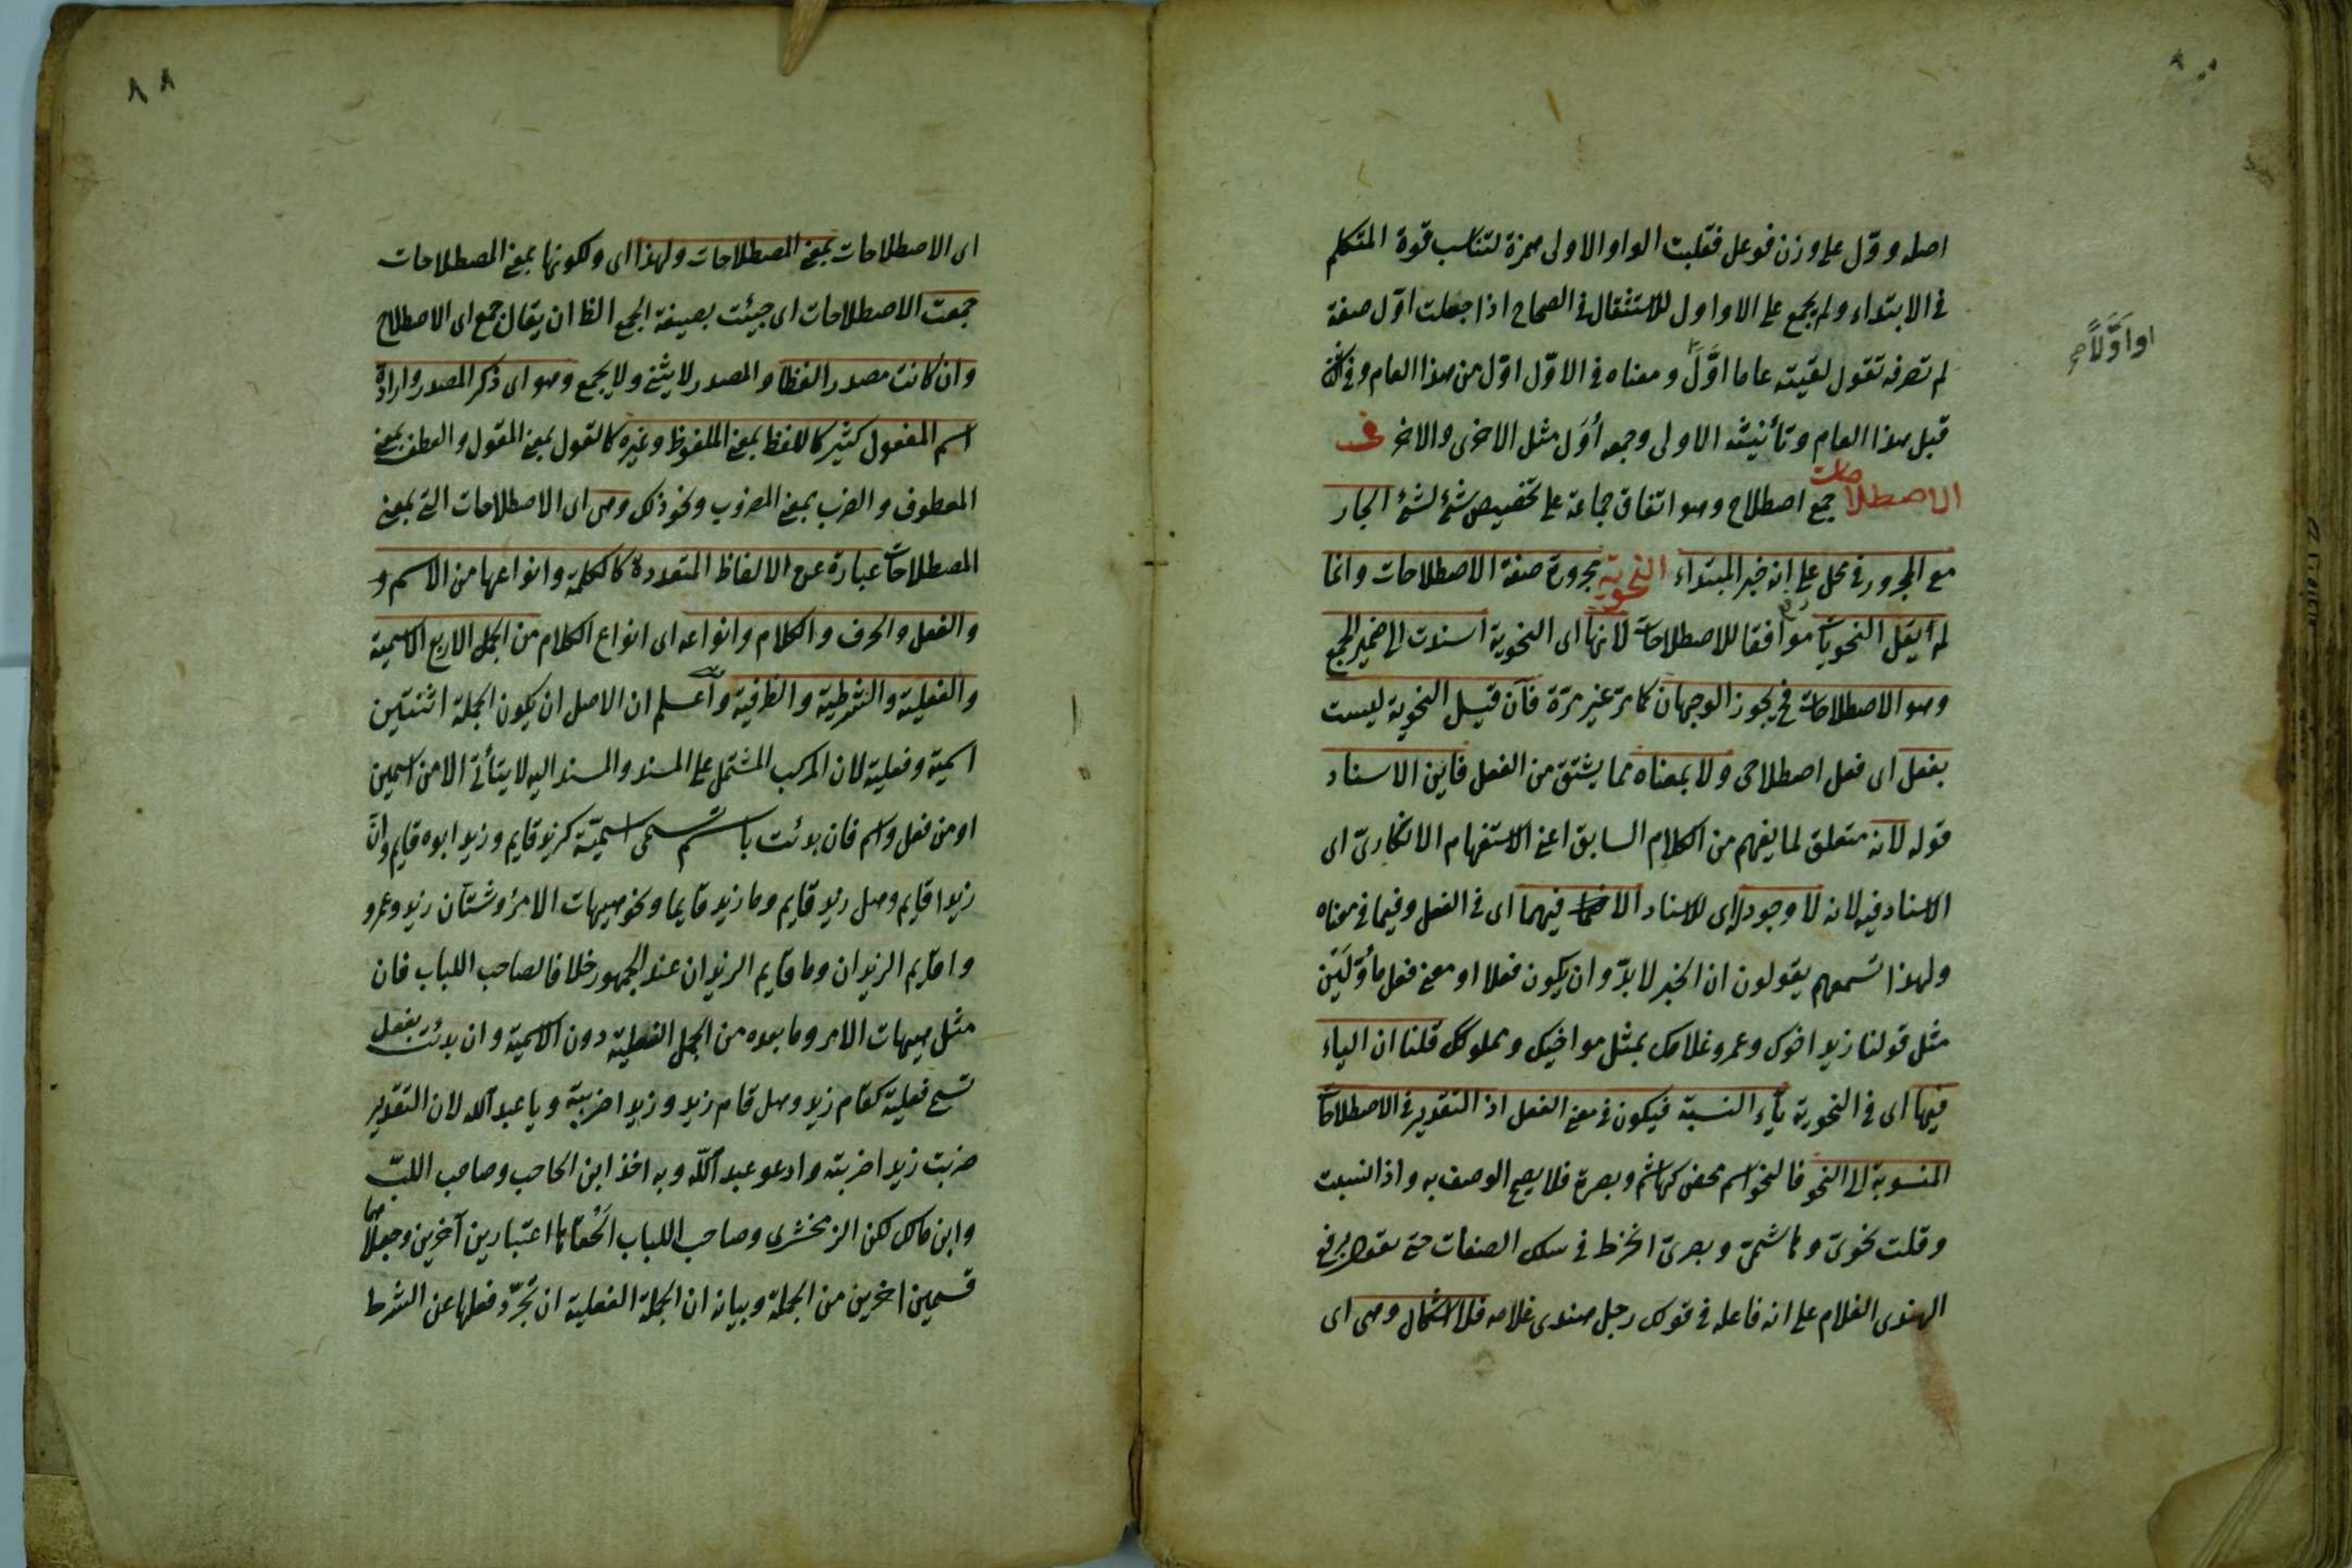 اصله ووّل على وزن فوعل فقلبت الواو الاولى همزة لتناسب قوة المتكلم
فى الابتداء ولم يجمع على الاواول للاستثقال فى الصحاح اذا جعلت اوّل صفة
لم تصرفه تقول لقيته عاما اوّلَ ومعناه فى الاوّل اوّل من هذا العام وفى
او اَوَّلاً صح
قبل هذا العام وتأنيثه الاولى وجمعه أُوَل مثل الاخرى والاخر فى
الاصطلاحات جمع اصطلاح وهو اتفاق جماعة على تخصيص شئ لشئ الجار
مع المجرور فى محل على انه خبر المبتداء النحوية مجرورة صفة الاصطلاحات وانما
لم يقل النحويات موافقا للاصطلاحات لانها اى النحوية اسندت الى ضمير الجمع
وهو الاصطلاحات فح يجوز الوجهان كما مرّ غير مرّة فان قيل النحوية ليست
بفعل اى فعل اصطلاحى ولا بمعناه مما يشتق من الفعل فاين الاسناد
قوله لانه متعلق لما يفهم من الكلام السابق اعنى الاستفهام الانكارىّ اى
الاسناد فيه لانه لا وجود له اى للاسناد الا فيهما اى فى الفعل وفيما فى معناه
ولهذا تسمعهم يقولون ان الخبر لا بدّ وان يكون فعلا او معنى فعل مأوّلين
مثل قولنا زيد اخوك وعمرو غلامك بمثل مواخيك ومملوكك قلنا ان الياء
فيها اى فى النحوية ياء النسبة فيكون فى معنى الفعل اذ التقدير فى الاصطلاحات
المنسوبة الى النحو فالنحو اسم محض كهاشم وبصرة فلا يصح الوصف به واذا نسبت
وقلت نحوىّ وهاشمىّ وبصرىّ انخرط فى سلك الصفات حتى يرفع
الهندى الغلام على انه فاعله فى قولك رجل هندى غلامه فلا اشكال وهى اى
٨٨
اى الاصطلاحات بمعنى المصطلاحات ولهذا اى ولكونها بمعنى المصطلاحات
جمعت الاصطلاحات اى جيئت بصيغة الجمع الظ ان يقال جمع اى الاصطلاح
وان كانت مصدر الفظا والمصدر لا يثنى ولا يجمع وهو اى ذكر المصدر وارادة
اسم المفعول كثير كاللفظ بمعنى الملفوظ وغيره كالقول بمعنى المقول والعطف بمعنى
المعطوف والضرب بمعنى المضروب ونحو ذلك وهى اى الاصطلاحات التى بمعنى
المصطلاحات عبارة عن الالفاظ المتعددة كالكلمة وانواعها من الاسم و
والفعل والحرف والكلام وانواعه اى انواع الكلام من الجمل الاربع الاسمية
والفعلية والشرطية والظرفية واعلم ان الاصل ان يكون الجملة اثنتين
اسمية وفعلية لان المركب المشتمل على المسند والمسند اليه لا يتأتى الا من اسمين
او من فعل واسم فان بدئت باسم تسمى اسميّة كزيد قايم وزيد ابوه قايم وانّ
زيدا قايم وهل زيد قايم وما زيد قايما ونحو هيهات الامر وشتّان زيد وعمرو
واقايم الزيدان وما قايم الزيدان عند الجمهور خلافا لصاحب اللباب فان
مثل هيهات الامر وما بعده من الجمل الفعلية دون الاسمية وان بدئت بفعل
تسمى فعلية كقام زيد وهل قام زيد وزيدا ضربته ويا عبد الله لان التقدير
ضربت زيدا ضربته وادعو عبد الله وبه اخذ ابن الحاجب وصاحب اللبّ
وابن مالك لكن الزمخشرى وصاحب اللباب الحقا اعتبارين آخرين وجعلاهما
قسمين اخرين من الجملة وبيانه ان الجملة الفعلية ان تجرّد فعلها عن الشرط